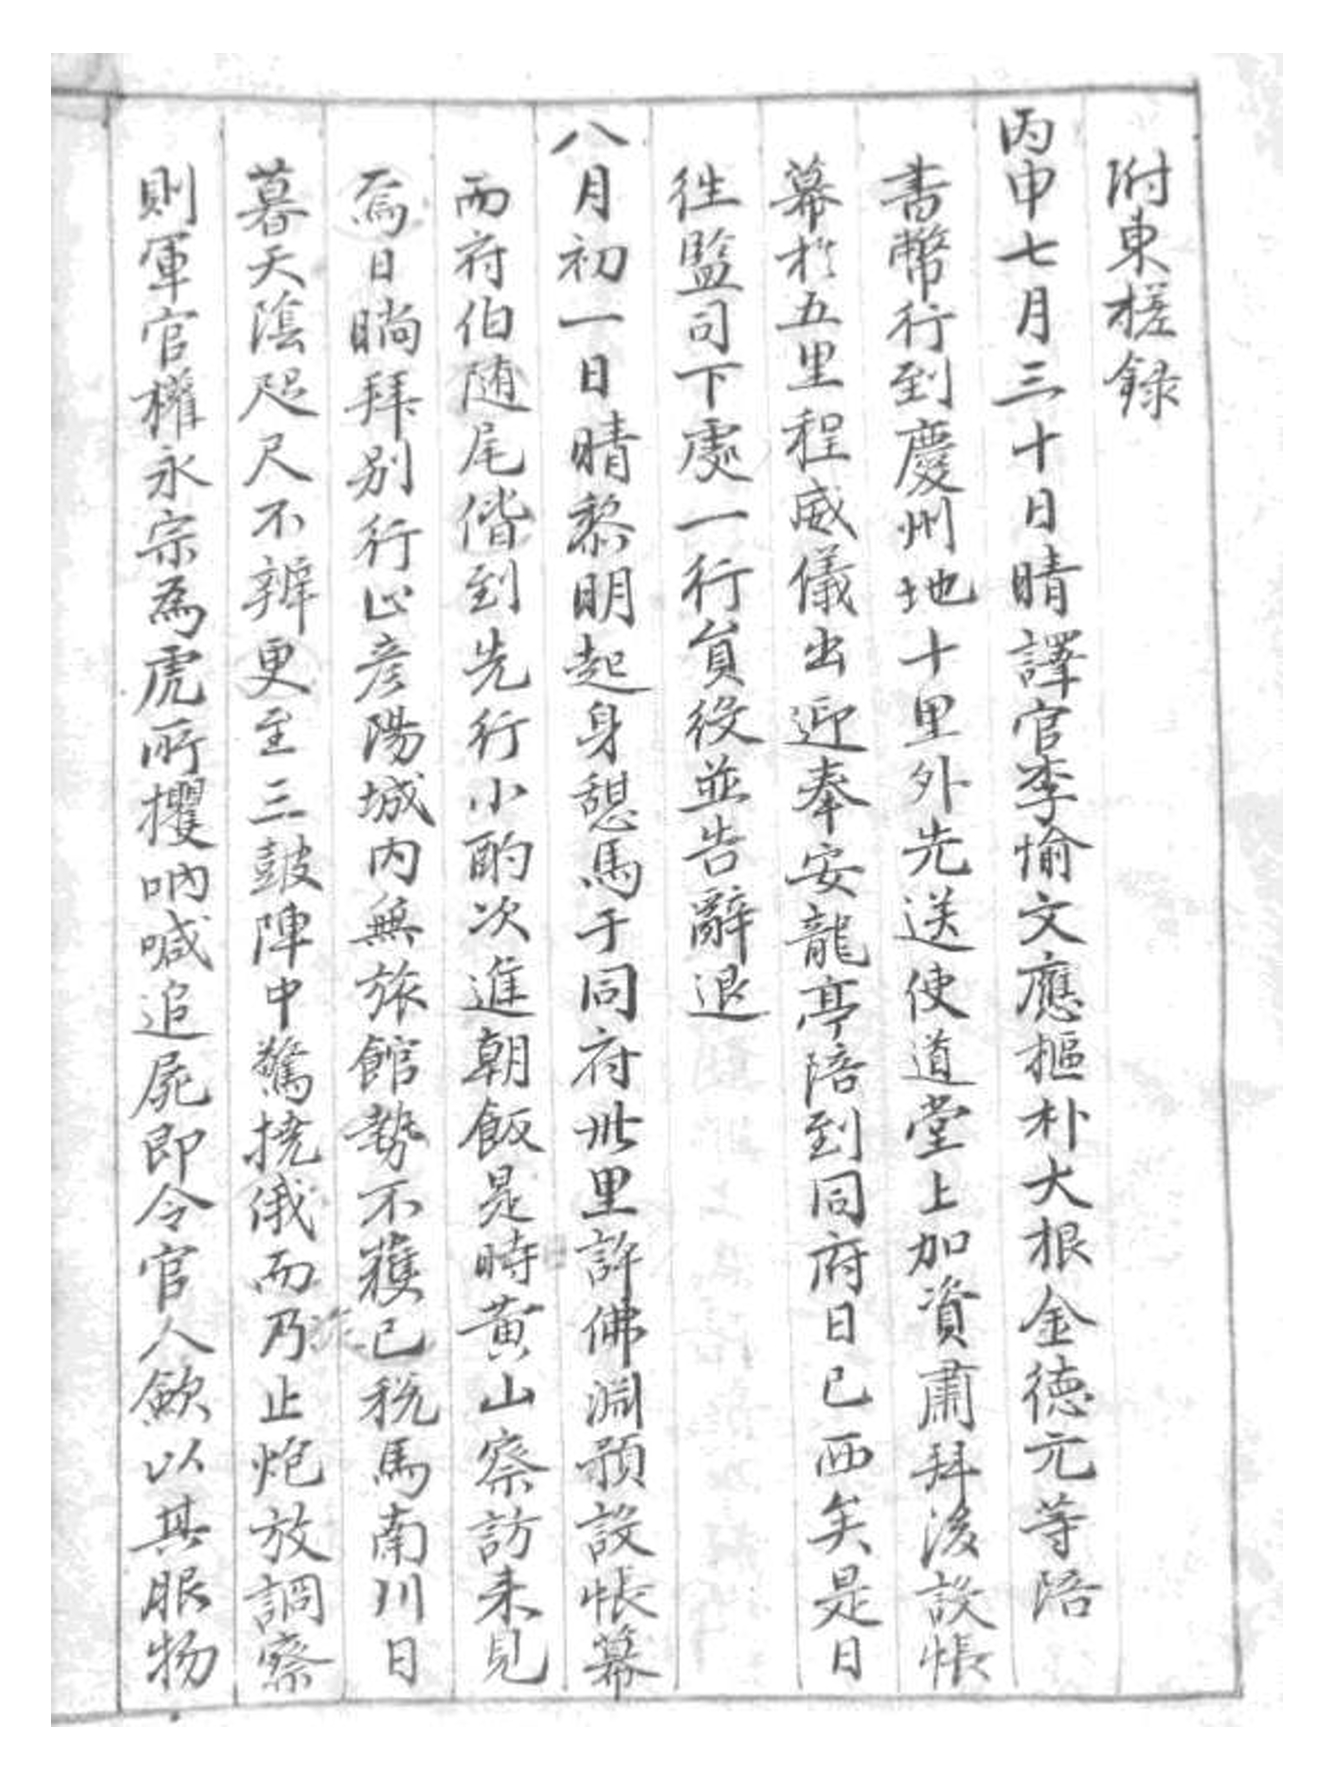 附東槎録
丙申七月三十日晴譯官李愉文應樞朴大根金徳元等陪
書幣行到慶州地十里外先送使道堂上加資肅拜後設帳
幕於五里程威儀出迎奉安龍亭陪到同府日已西矣是日
徃監司下處一行員役並告辭退
八月初一日晴黎明起身憩馬于同府卅里許佛淵預設帳幕
而府伯随尾偕到先行小酌次進朝飯是時黄山察訪来見
焉日晌拜别行止彦陽城内無旅館勢不獲已税馬南川日
暮天陰咫尺不辨更至三鼓陣中驚撓俄而乃止炮放詗察
則軍官權永宗為虎所攫吶喊追屍即令官人歛以其服物